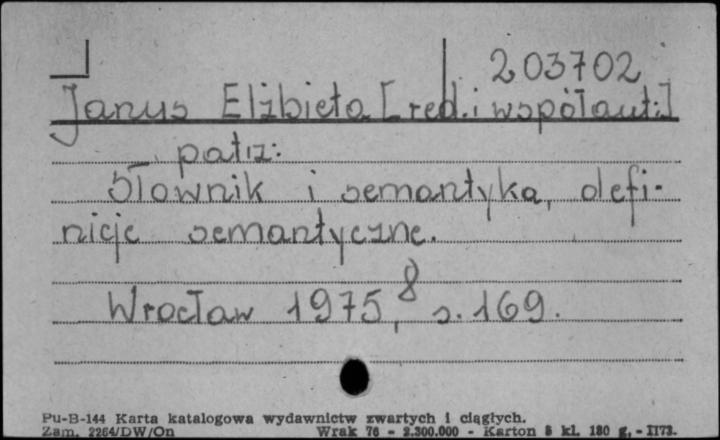 203702
Janus Elżbieta [red. i współaut.]
patrz:
Słownik i semantyka, defi-
nicje semantyczne.
Wrocław 1975, 8 s. 169.
Pu-B-144 Karta katalogowa wydawnictw zwartych i ciągłych.
Zam. 2264/DW/On Wrak 76 - 2.300.000 - Karton 8 kl. 180 g. - II73.